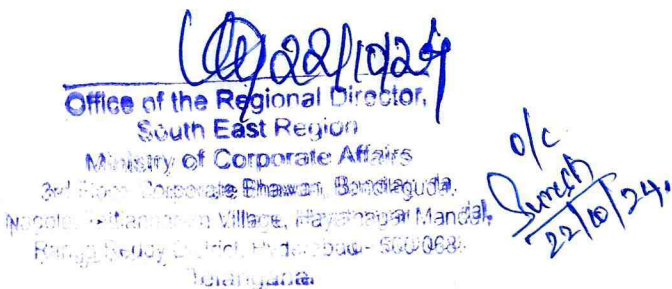 22/10/24
Office of the Regional Director,
South East Region
Ministry of Corporate Affairs
3rd Floor Corporate Bhawan, Bandlaguda,
Nagole, Village, Hayathnagar Mandal,
Ranga Reddy District, Hyderabad - 500 068.
Telangana
o/c
Suresh
22/10/24.